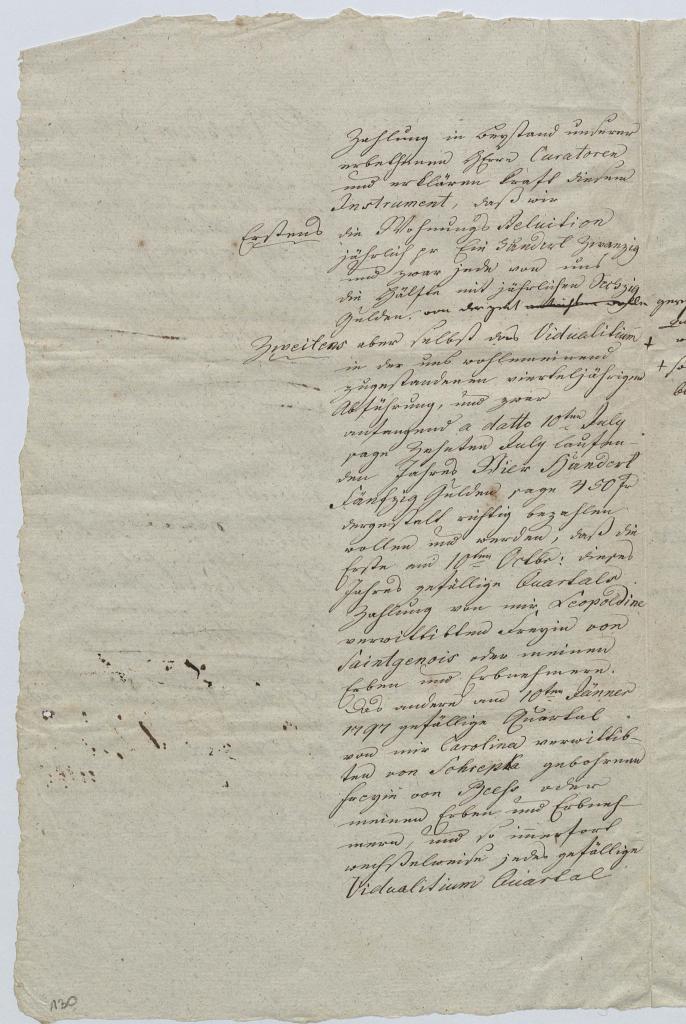 Zahlung in Beystand unserer
erbethenen Herrn Curatoren
und erklären kraft diesem
Instrument, daß wir
Erstens die Wohnungs Reluition
jährlich pr Ein Hundert Zwanzig
und zwar jede von uns
die Hälfte mit jährlichen Sechzig
Gulden. von
Zweitens aber selbst das Vidualitium +
in der uns wohlmeinend
zugestandenen vierteljährigen
Abführung, und zwar
anfangend a datto 10ten July
sage Zehnten July laufen-
den Jahres Vier Hundert
Fünfzig Gulden sage 450 Fr
dergestalt richtig bezahlen
wollen und werden, daß die
Erste am 10ten Octbr: dieses
Jahres gefällige Quartals
Zahlung von mir Leopoldine
verwittibten Freyin von
Saintgenois oder meinen
Erben und Erbnehmern.
Das andere am 10ten Jänner
1797 gefällige Quartal
von mir Carolina verwittib-
ten von Skrepka gebohrenen
Freyin von Beess oder
meinen Erben und Erbneh-
mern, und so immerfort
wechselweise jedes gefällige
Vidualitium Quartal
130